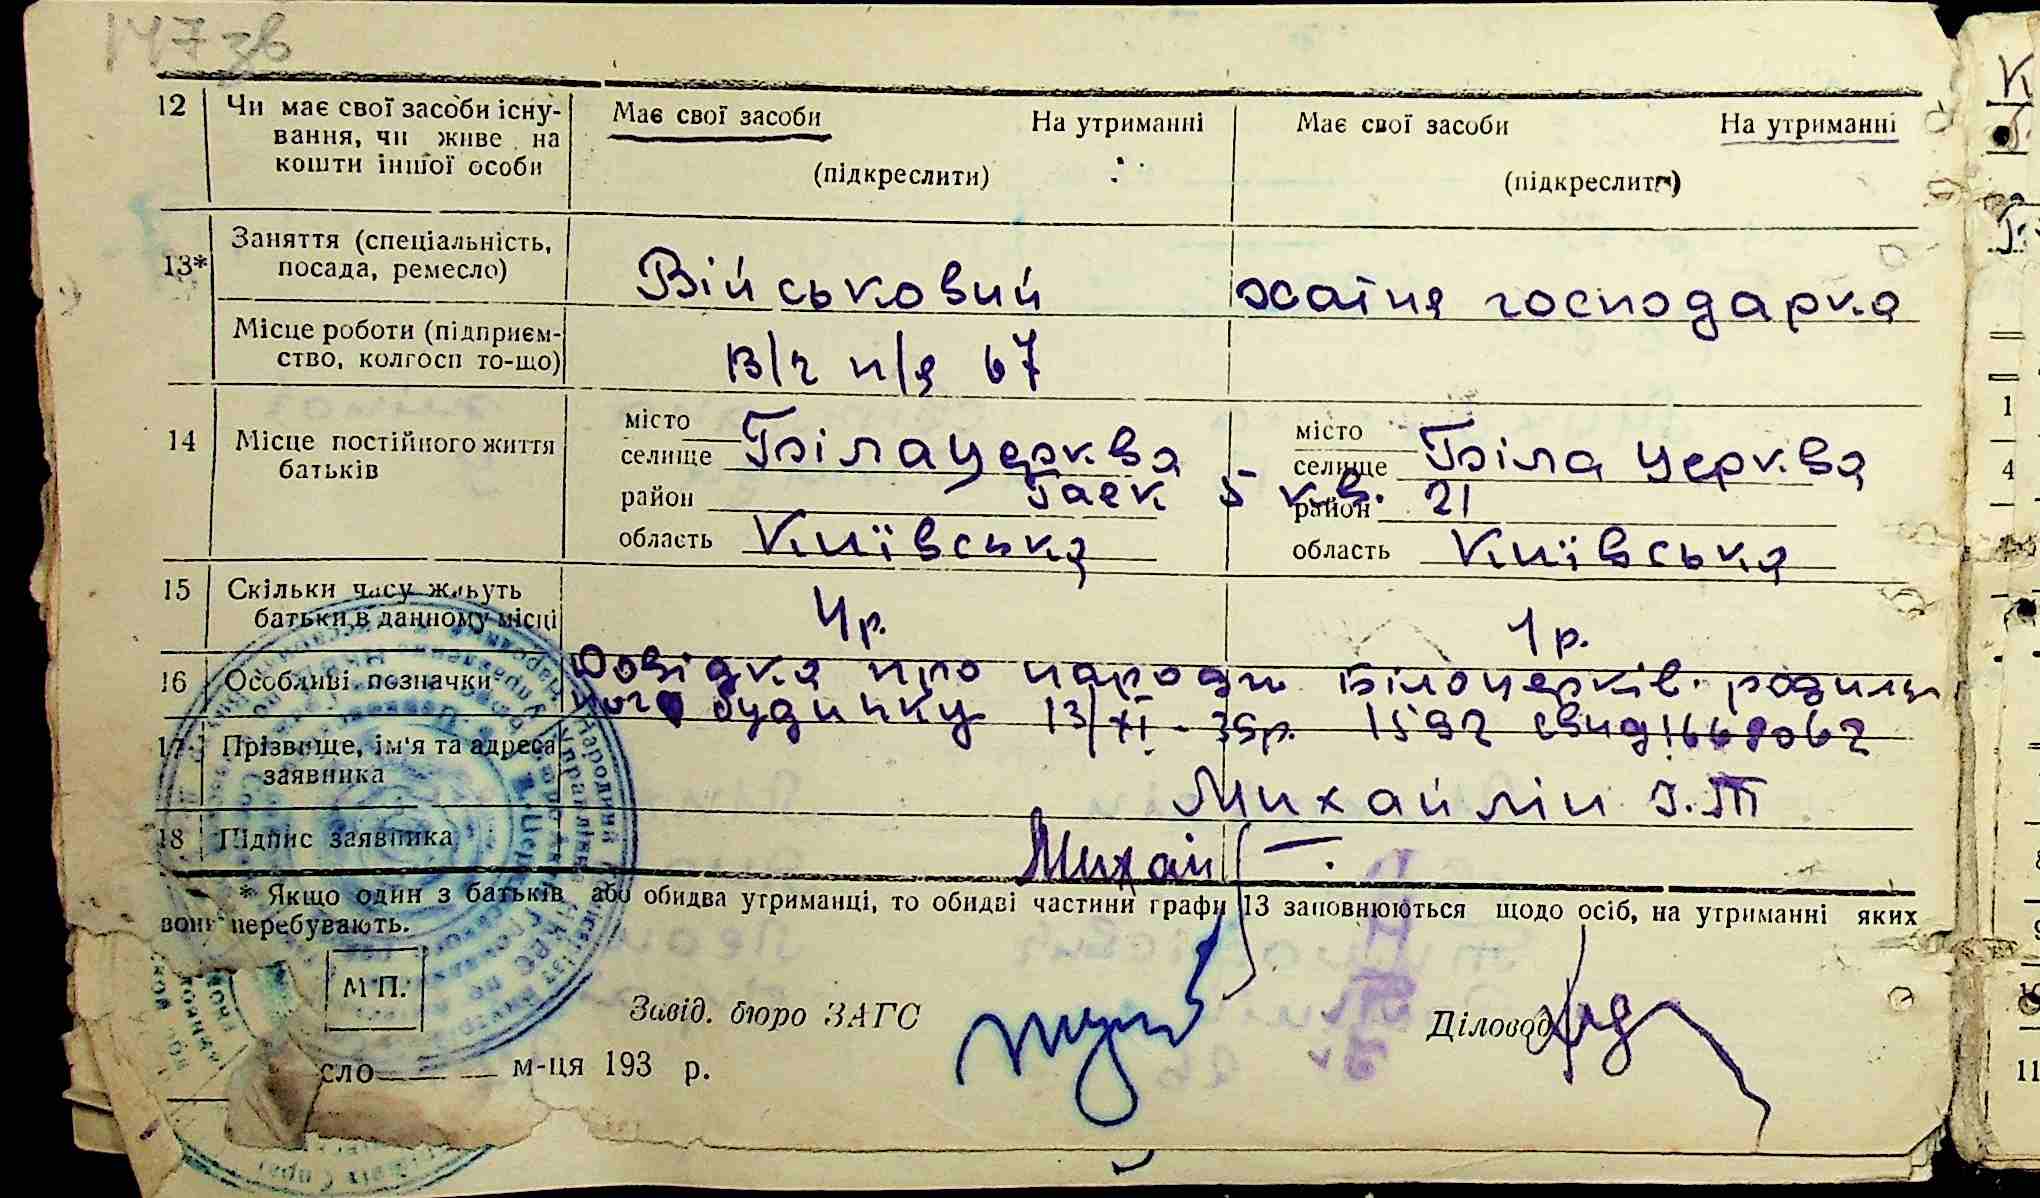 147 зв
12 Чи має свої засоби існу- Має свої засоби На утриманні Має свої засоби На утриманні
вання, чи живе на
кошти іншої особи (підкреслити) (підкреслити)
13* Заняття (спеціальність,
посада, ремесло) Військовий хатня господарка
Місце роботи (підприєм-
ство, колгосп то-що) В/ч п/я 67
14 Місце постійного життя
батьків
місто
селище Біла церква
місто
селище Біла церква
район Гаєк 5 кв. район 21
область Київська область Київська
15 Скільки часу живуть
батьки в данному місці 4 р. 1 р.
16 Особливі позначки Довідка про народж Білоцерків. родиль
ного будинку 13/XI - 39р. 1592 свид
17 Прізвище, ім'я та адреса
заявника Михайлін І.Т
18 Підпис заявника Михай
* Якщо один з батьків або обидва утриманці, то обидві частини графи 13 заповнюються щодо осіб, на утриманні яких
вони перебувають.
М П.
Завід. бюро ЗАГС Діловод
сло м-ця 193 р.